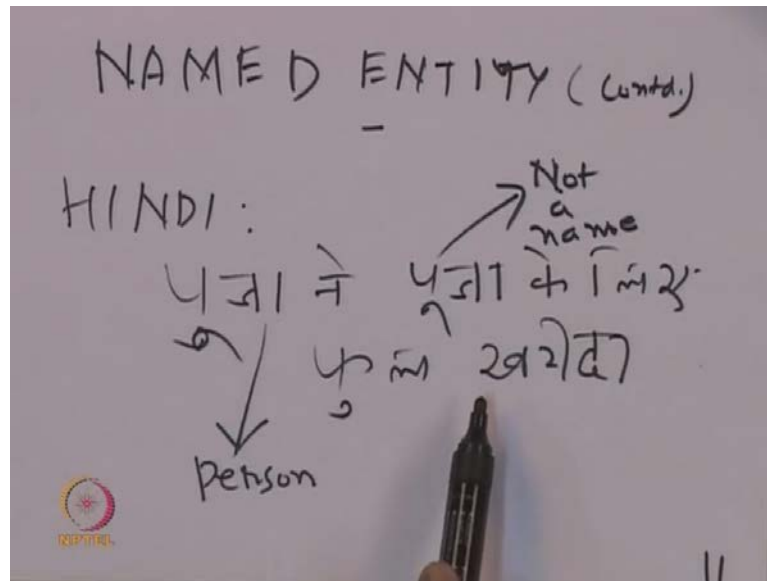 NAMED ENTITY (Contd.)
HINDI:
Not
a
name
पूजा ने पूजा के लिए
फुल खरीदा
Person
NPTEL
11